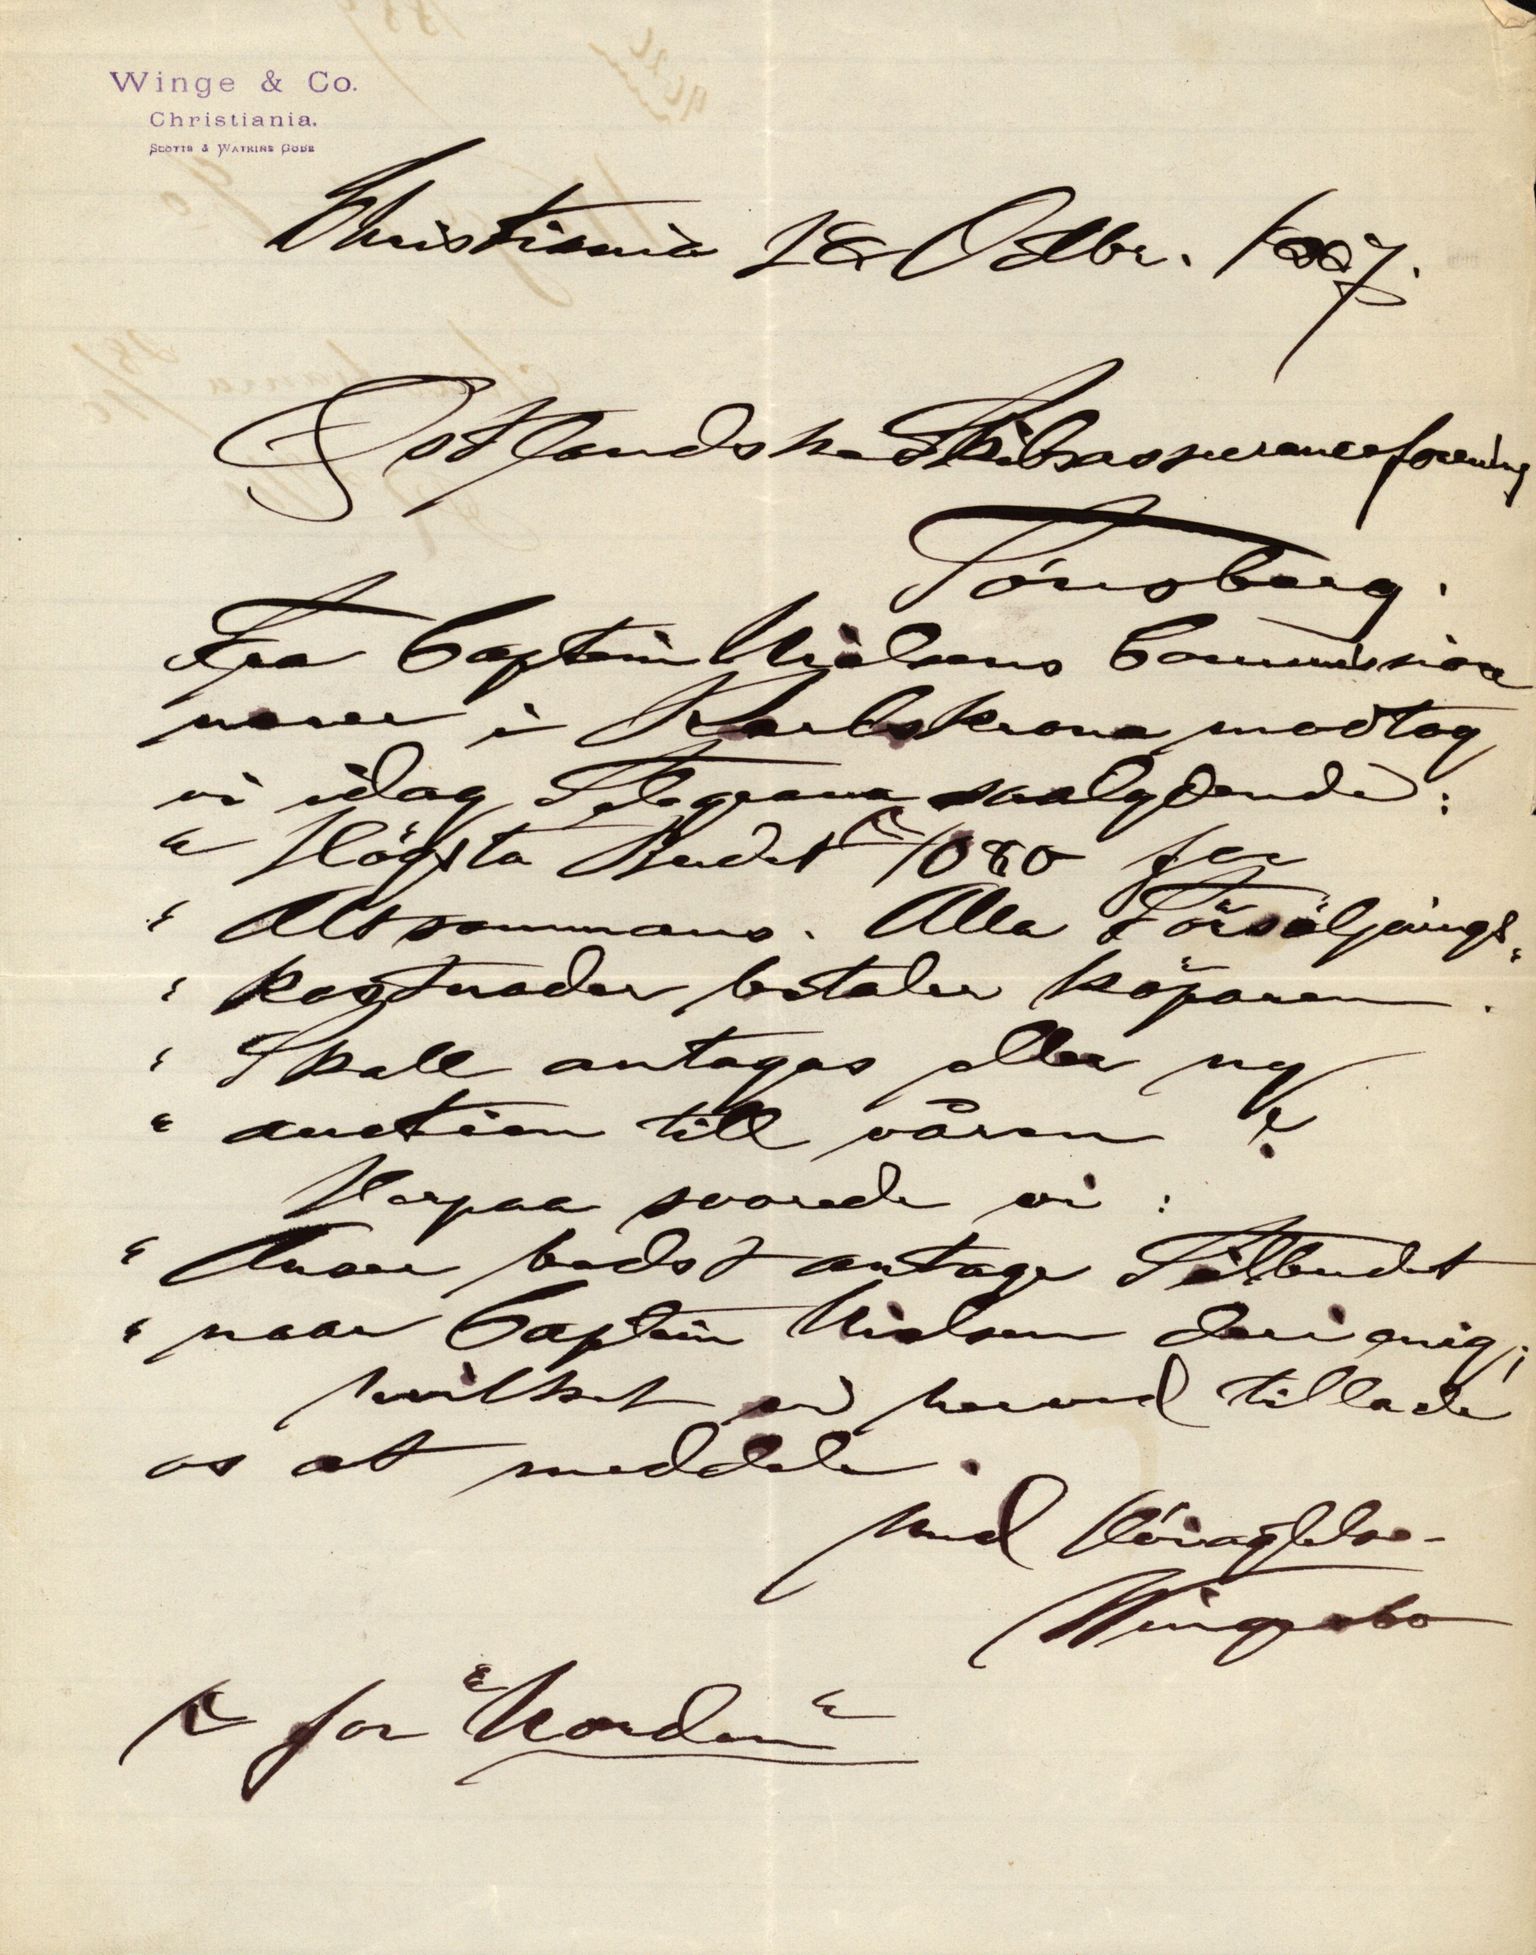 Winge & Co.
Christiania.
Scotts & Watkins Code
Christiania 28 Octbr. 1887.
Østlandske Skibsassuranceforening
Tönsberg.
Fra Captein Nielsens Commissio
nærer i Karlskrona modtog
vi idag Telegram saalydende:
" Högsta Budet 1080 för
" Altsammans. Alla Försäljnings-
" kostnader betaler köparen.
" Skall antagas eller ny
" auction till våren ?
Herpaa svarede vi :
" Anser bedst antage Tilbudet
" naar Captein Nielsen deri enig;
hvilket vi herved tillade
os at meddele.
Med Höiagtelse
Winge & Co
for "Norden"